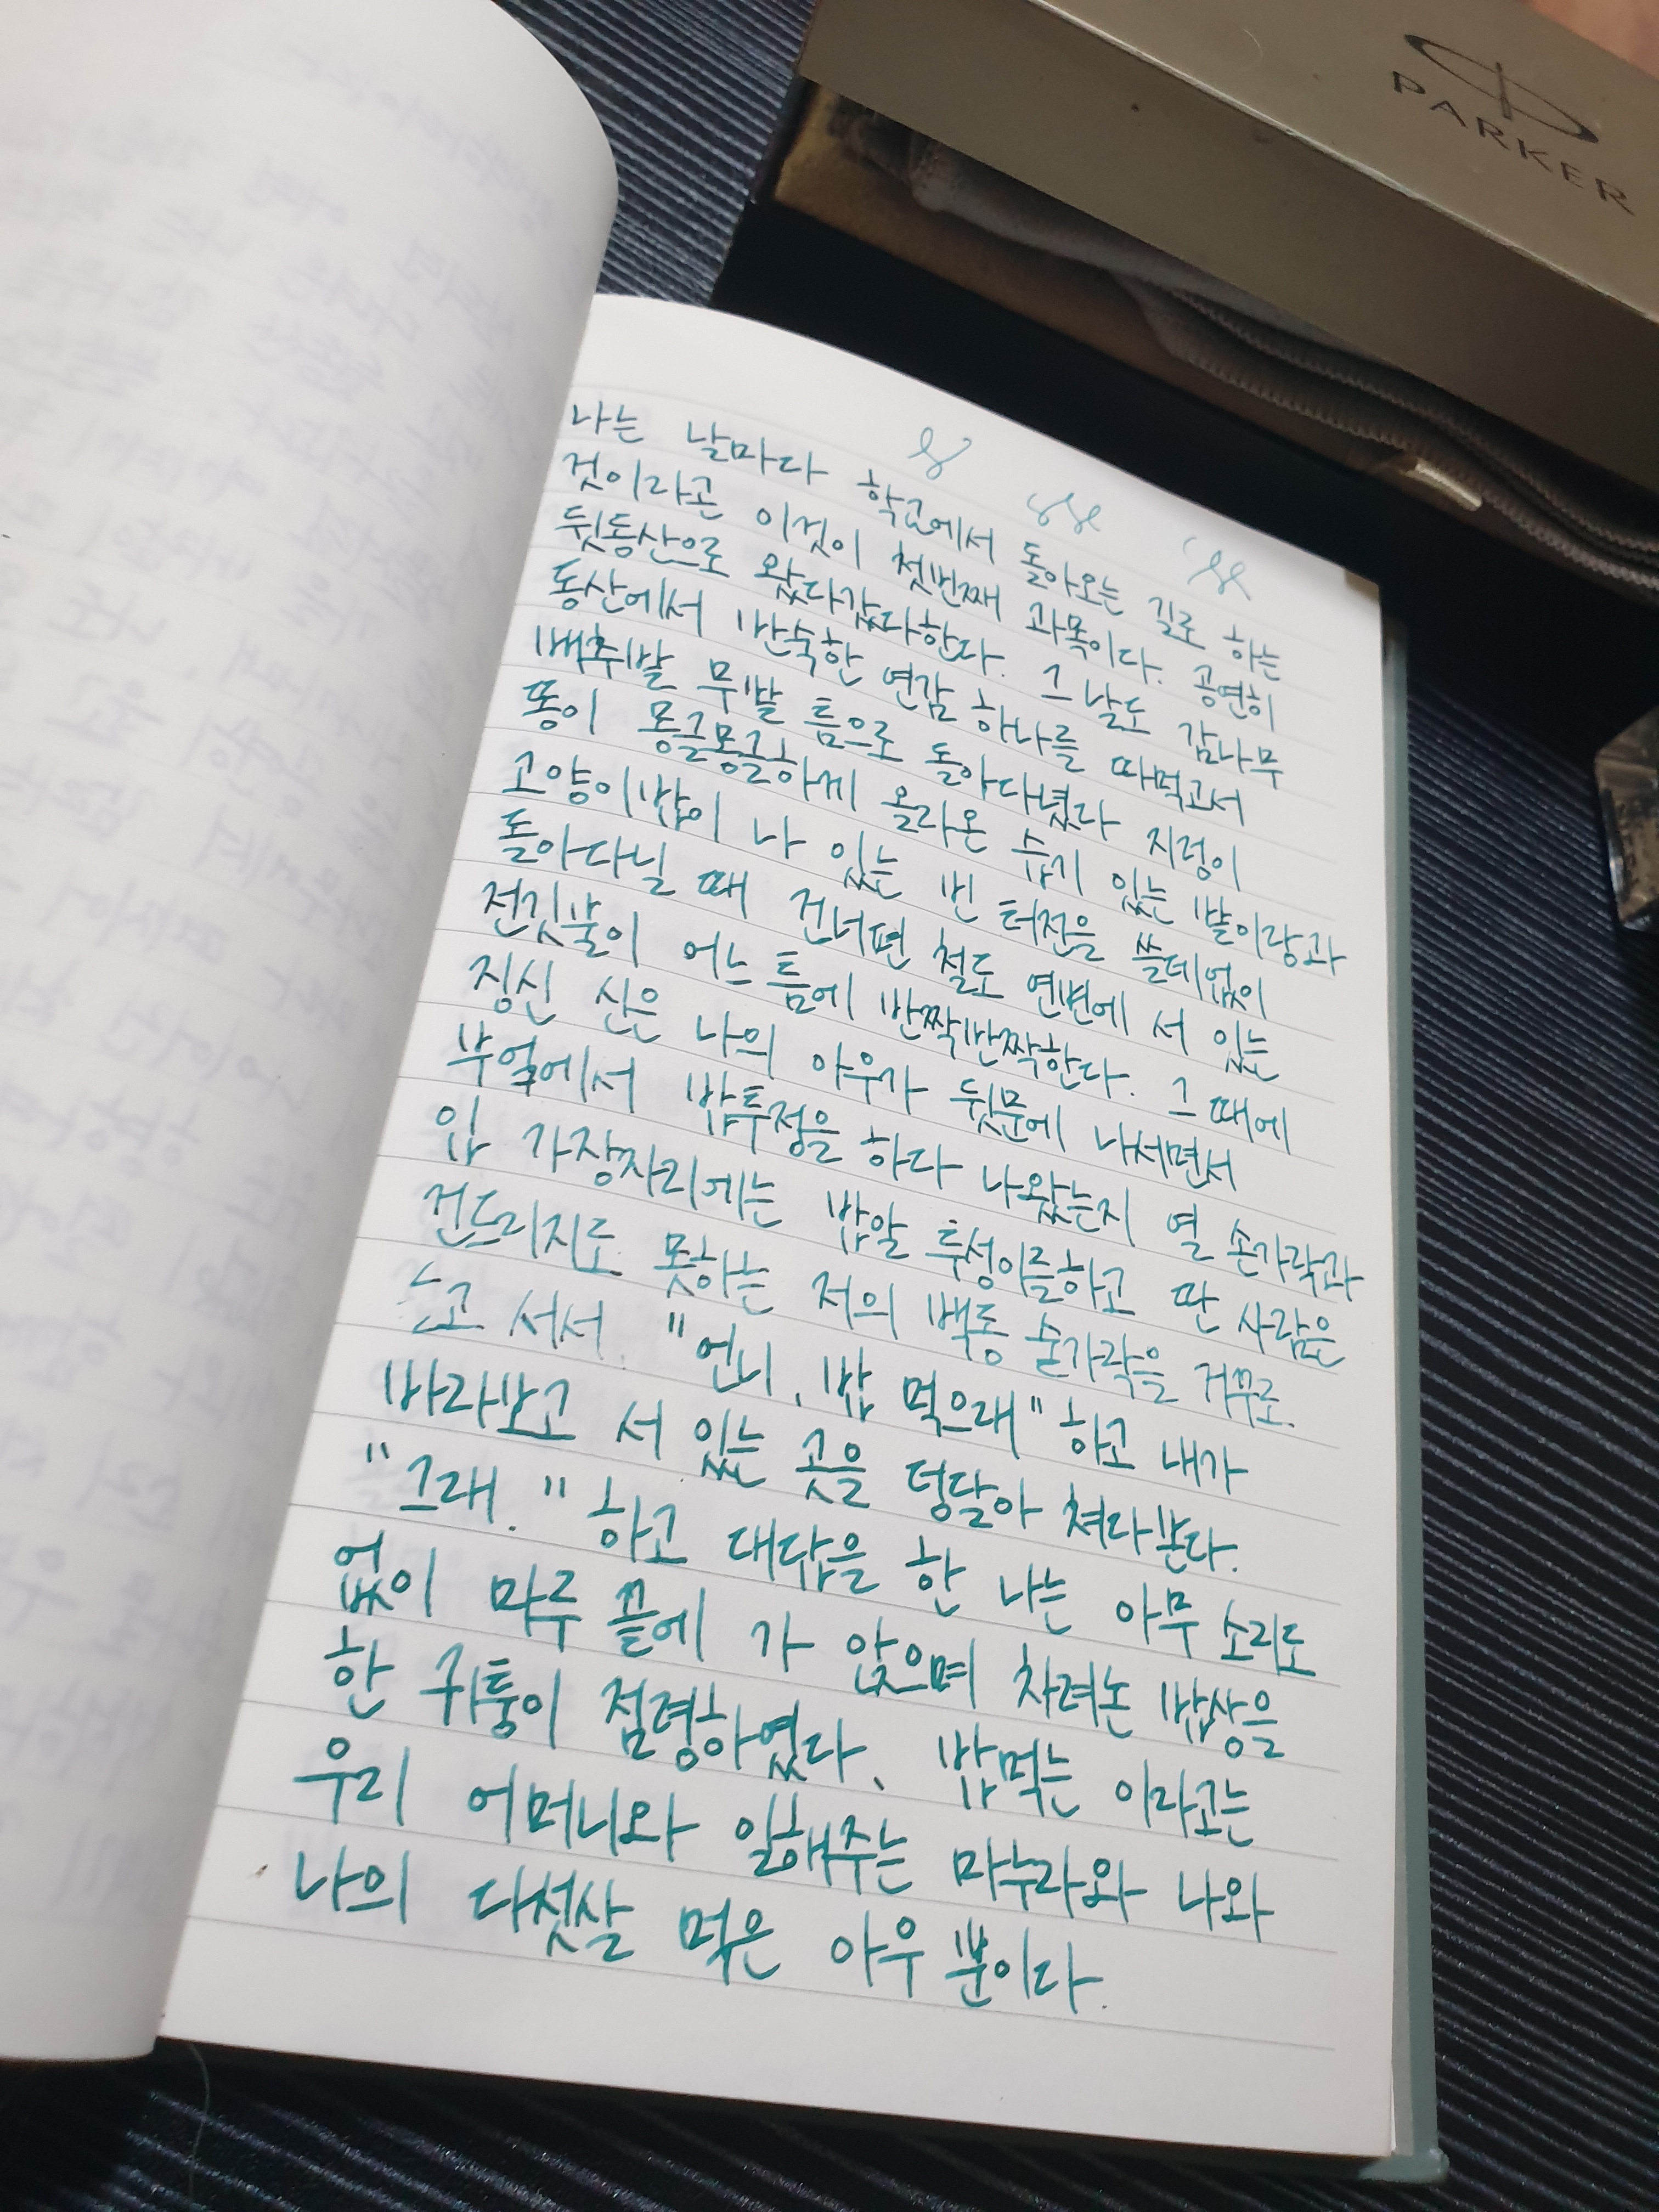 PARKER
나는 날마다 학교에서 돌아오는 길로 하는
것이라곤 이것이 첫번째 과목이다. 공연히
뒷동산으로 왔다갔다한다. 그 날도 감나무
동산에서 반숙한 연감 하나를 따먹고서
배추밭 무밭 틈으로 돌아다녔다 지렁이
똥이 몽글몽글하게 올라온 습기 있는 밭이랑과
고양이밥이 나 있는 빈 터전을 쓸데없이
돌아다닐 때 건너편 철도 연변에 서 있는
전깃불이 어느 틈에 반짝반짝한다. 그 때에
징신 신은 나의 아우가 뒷문에 나서면서
부엌에서 밥투정을 하다 나왔는지 열 손가락과
입 가장자리에는 밥알 투성이를하고 딴 사람은
건드리지도 못하는 저의 백동 숟가락을 거꾸로
들고 서서. "언니, 밥 먹으래" 하고 내가
바라보고 서 있는 곳을 덩달아 쳐다본다.
"그래." 하고 대답을 한 나는 아무 소리도
없이 마루 끝에 가 앉으며 차려논 밥상을
한 귀퉁이 점령하였다. 밥먹는 이라고는
우리 어머니와 일해주는 마누라와 나와
나의 다섯살 먹은 아우 뿐이다.